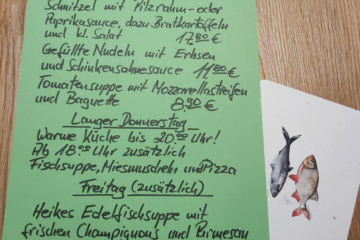 Schnitzel mit Pilzrahm- oder
Paprikasauce, dazu Bratkartoffeln
und kl. Salat 17,80 €
Gefüllte Nudeln mit Erbsen
und Schinkensahnesauce 11,80 €
Tomatensuppe mit Mozzarellastreifen
und Baguette 8,30 €
Langer Donnerstag
Warme Küche bis 20.00 Uhr!
Ab 18.00 zusätzlich
Fischsuppe, Miesmuscheln und Pizza
Freitag (zusätzlich)
Heikes Edelfischsuppe mit
frischen Champignons und Parmesan